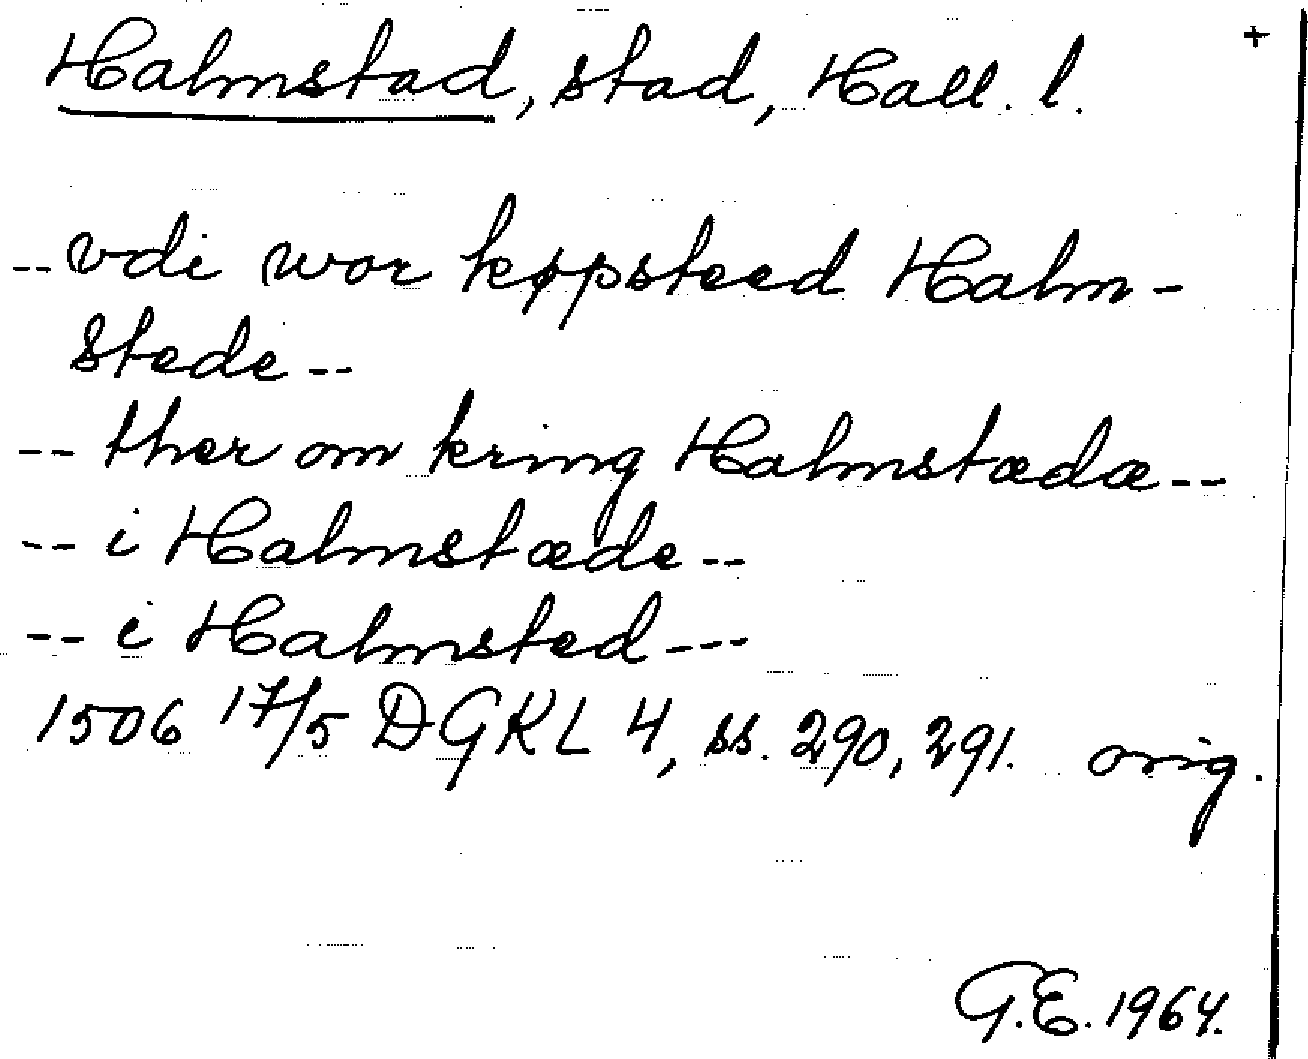 Halmstad, stad, Hall. l. +
-- vdi wor køpsteed Halm-
stede --
-- ther om kring Halmstædæ --
-- i Halmstæde --
-- i Halmsted ---
1506 17/5 DGKL 4, ss. 290, 291. orig.
G.E. 1964.